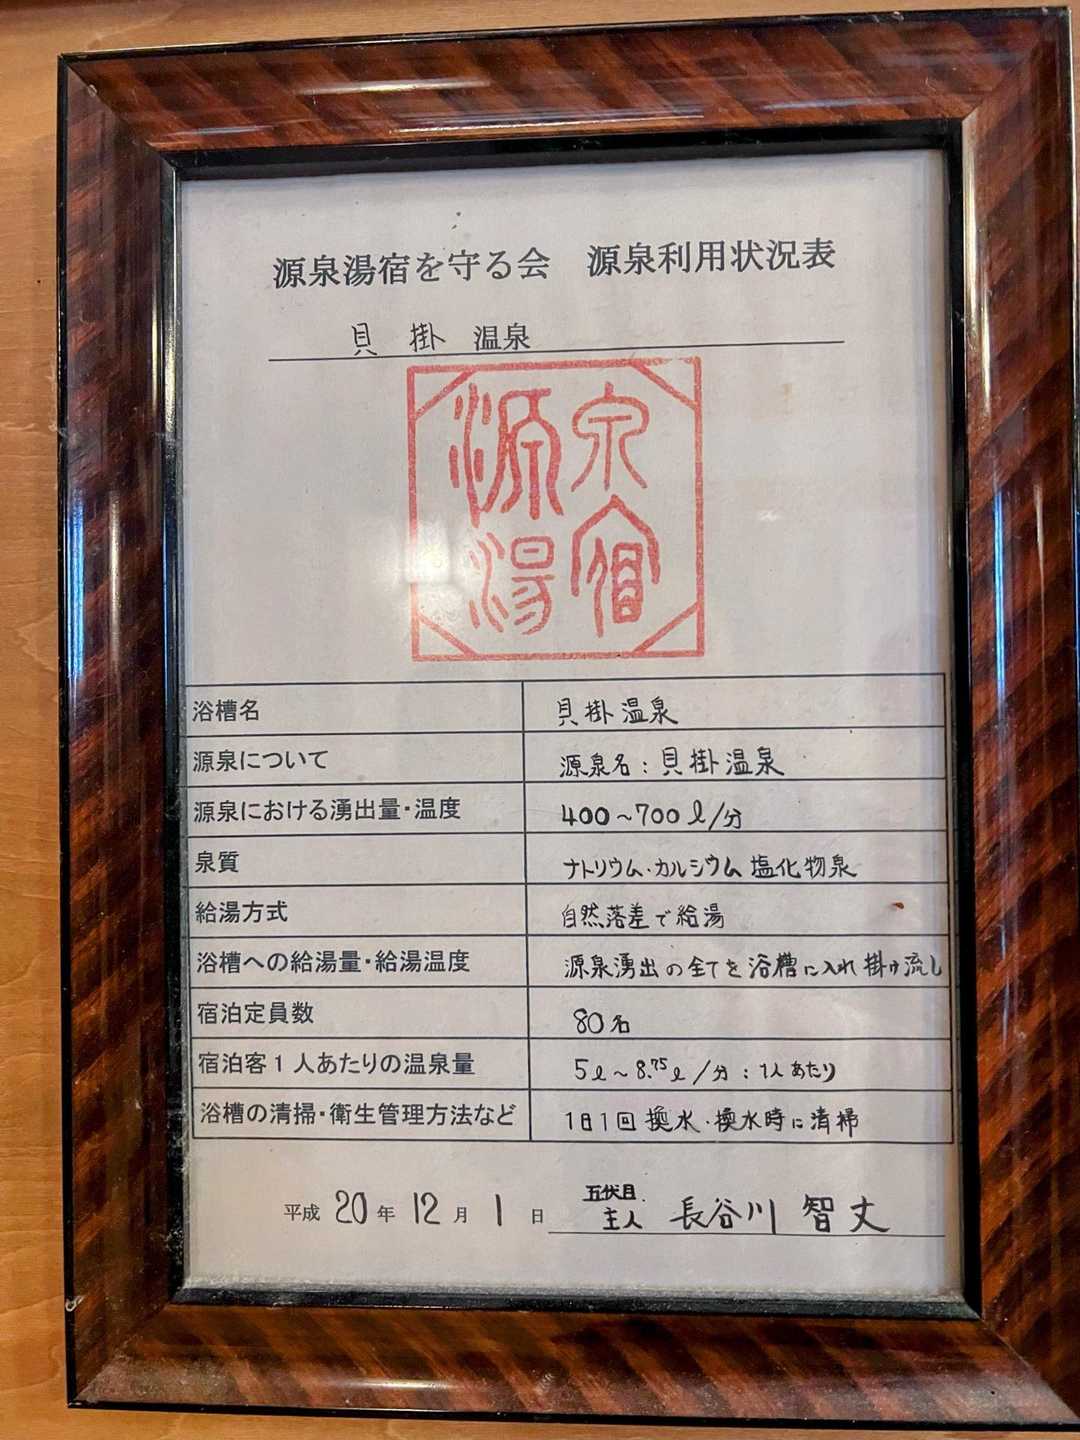 源泉湯宿を守る会　源泉利用状況表
貝 掛 温泉
源泉
湯宿
浴槽名 貝掛温泉
源泉について 源泉名：貝掛温泉
源泉における湧出量・温度 400～700ℓ/分
泉質 ナトリウム・カルシウム塩化物泉
給湯方式 自然落差で給湯
浴槽への給湯量・給湯温度 源泉湧出の全てを浴槽に入れ掛け流し
宿泊定員数 80名
宿泊客1人あたりの温泉量 5ℓ～8.75ℓ/分：1人あたり
浴槽の清掃・衛生管理方法など 1日1回換水・換水時に清掃
平成20年12月1日 五代目主人 長谷川 智丈